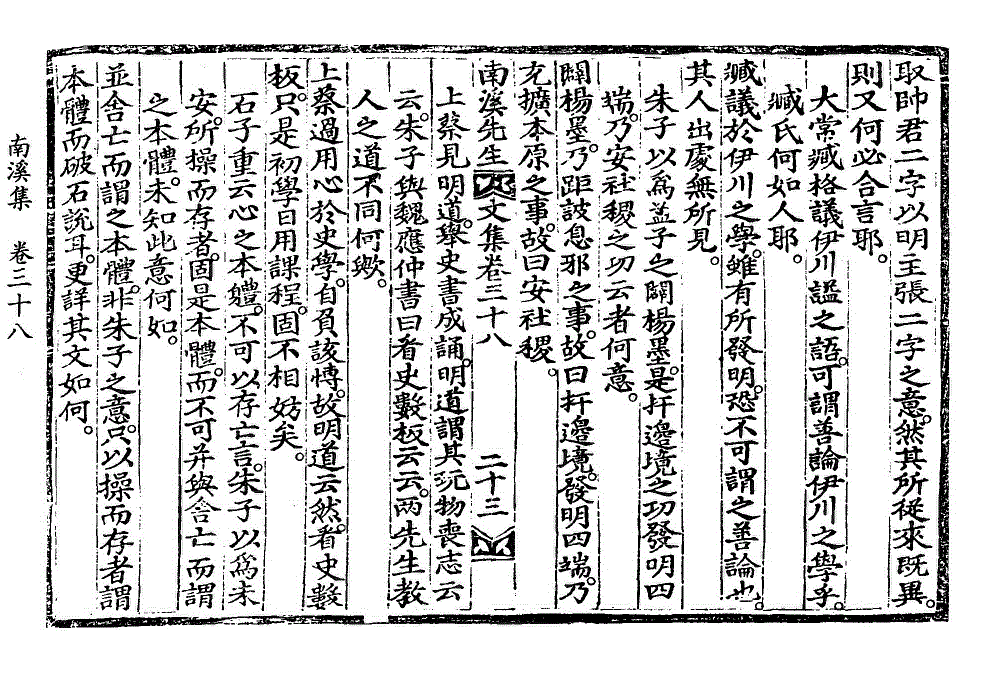 取帥君二字以明主張二字之意。然其所從來既異。
則又何必合言耶。
大常臧格議伊川謚之語。可謂善論伊川之學乎。
臧氏何如人耶。
臧議於伊川之學。雖有所發明。恐不可謂之善論也。
其人出處無所見。
朱子以爲孟子之闢楊墨。是扞邊境之功發明四
端。乃安社稷之功云者何意。
闢楊墨。乃距詖息邪之事。故曰扞邊境。發明四端。乃
充擴本原之事。故曰安社稷。
南溪先生文集卷三十八 二十三
上蔡見明道。舉史書成誦。明道謂其玩物喪志云
云。朱子與魏應仲書曰看史數板云云。兩先生敎
人之道不同何歟。
上蔡過用心於史學。自負該博。故明道云然。看史數
板。只是初學日用課程。固不相妨矣。
石子重云心之本軆。不可以存亡言。朱子以爲未
安。所操而存者。固是本體。而不可并與舍亡而謂
之本體。未知此意何如。
並舍亡而謂之本體。非朱子之意。只以操而存者謂
本體而破石說耳。更詳其文如何。
南溪集 卷三十八